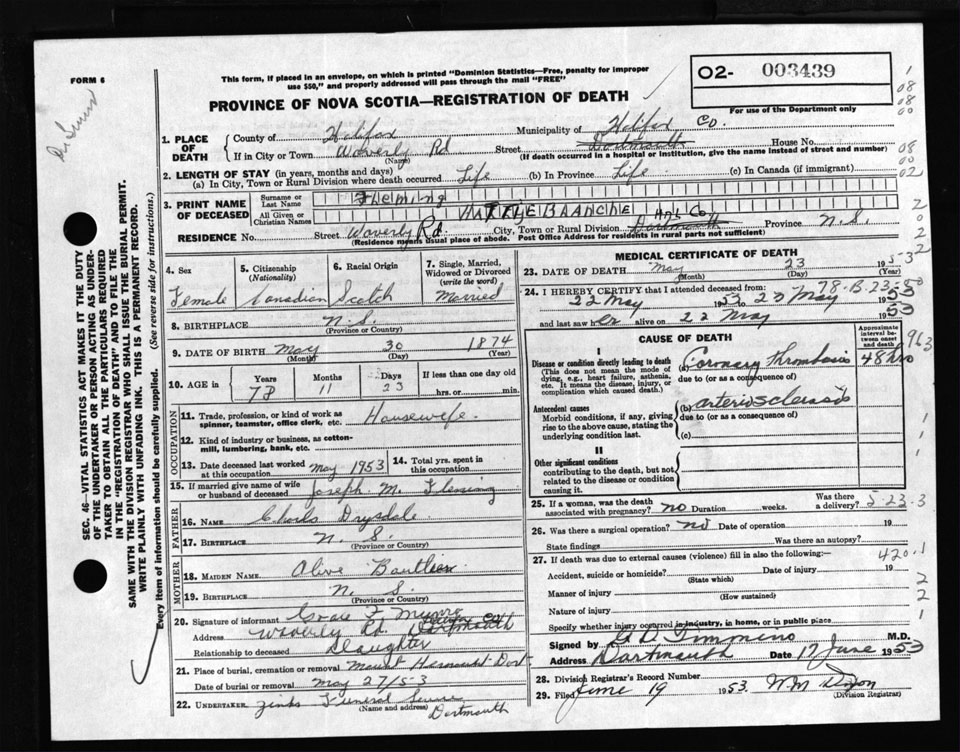 FORM 6
This form, if placed in an envelope, on which is printed "Dominion Statistics—Free, penalty for improper
use $50," and properly addressed will pass through the mail "FREE"
O2- 003439
For use of the Department only
PROVINCE OF NOVA SCOTIA—REGISTRATION OF DEATH
1. PLACE OF DEATH
County of Halifax Municipality of Halifax Co.
If in City or Town Waverly Rd Street Dartmouth House No.
(Name) (If death occurred in a hospital or institution, give the name instead of street and number)
2. LENGTH OF STAY (in years, months and days)
(a) In City, Town or Rural Division where death occurred Life (b) In Province Life (c) In Canada (if immigrant)
3. PRINT NAME OF DECEASED
Surname or Last Name Fleming
All Given or Christian Names HATTIE BLANCHE
Hfx Co
RESIDENCE No. Street Waverly Rd. City, Town or Rural Division Dartmouth Province N.S.
(Residence means usual place of abode. Post Office Address for residents in rural parts not sufficient)
4. Sex Female
5. Citizenship (Nationality) Canadian
6. Racial Origin Scotch
7. Single, Married, Widowed or Divorced (write the word) Married
8. BIRTHPLACE N.S.
(Province or Country)
9. DATE OF BIRTH May 30 1874
(Month) (Day) (Year)
10. AGE in Years 78 Months 11 Days 23 If less than one day old hrs. or min.
OCCUPATION
11. Trade, profession, or kind of work as spinner, teamster, office clerk, etc. Housewife.
12. Kind of industry or business, as cotton-mill, lumbering, bank, etc.
13. Date deceased last worked at this occupation May 1953
14. Total yrs. spent in this occupation
15. If married give name of wife or husband of deceased Joseph M. Fleming
FATHER
16. NAME Charles Drysdale
17. BIRTHPLACE N.S.
(Province or Country)
MOTHER
18. MAIDEN NAME Olive
19. BIRTHPLACE N.S.
(Province or Country)
20. Signature of informant Grace F Munro
Address Waverly Rd. Dartmouth
Relationship to deceased Daughter
21. Place of burial, cremation or removal Mount Dart-
Date of burial or removal May 27/5-3
22. UNDERTAKER Zinks Funeral Service
(Name and address) Dartmouth
MEDICAL CERTIFICATE OF DEATH
23. DATE OF DEATH May 23 195-3
(Month) (Day) (Year)
24. I HEREBY CERTIFY that I attended deceased from: 78-B-23-5-
22 May 1953 to 23 May 1953
and last saw her alive on 22 May 1953
CAUSE OF DEATH
Approximate interval between onset and death
I
Disease or condition directly leading to death
(This does not mean the mode of dying, e.g., heart failure, asthenia, etc. It means the disease, injury, or complication which caused death.)
(a) Coronary Thrombosis 48 hrs
due to (or as a consequence of)
Antecedent causes
Morbid conditions, if any, giving rise to the above cause, stating the underlying condition last.
(b) arteriosclerosis
due to (or as a consequence of)
(c)
II
Other significant conditions
contributing to the death, but not related to the disease or condition causing it.
25. If a woman, was the death associated with pregnancy? no Duration weeks. Was there a delivery? 5-23-3
26. Was there a surgical operation? no Date of operation 19
State findings Was there an autopsy?
27. If death was due to external causes (violence) fill in also the following:— 420.1
Accident, suicide or homicide? Date of injury 19
(State which)
Manner of injury
(How sustained)
Nature of injury
Specify whether injury occurred in industry, in home, or in public place
Signed by Timmins M.D.
Address Dartmouth Date 17 June 1953
28. Division Registrar's Record Number
29. Filed June 19 1953. W.M. Dixon
(Division Registrar)
SEC. 46—VITAL STATISTICS ACT MAKES IT THE DUTY
OF THE UNDERTAKER OR PERSON ACTING AS UNDER-
TAKER TO OBTAIN ALL THE PARTICULARS REQUIRED
IN THE "REGISTRATION OF DEATH" AND TO FILE THE
SAME WITH THE DIVISION REGISTRAR WHO SHALL ISSUE THE BURIAL PERMIT.
WRITE PLAINLY WITH UNFADING INK. THIS IS A PERMANENT RECORD.
Every item of information should be carefully supplied. (See reverse side for instructions.)
1
08
08
00
08
00
02
2
0
2
2
963
1
1
1
2
2
1